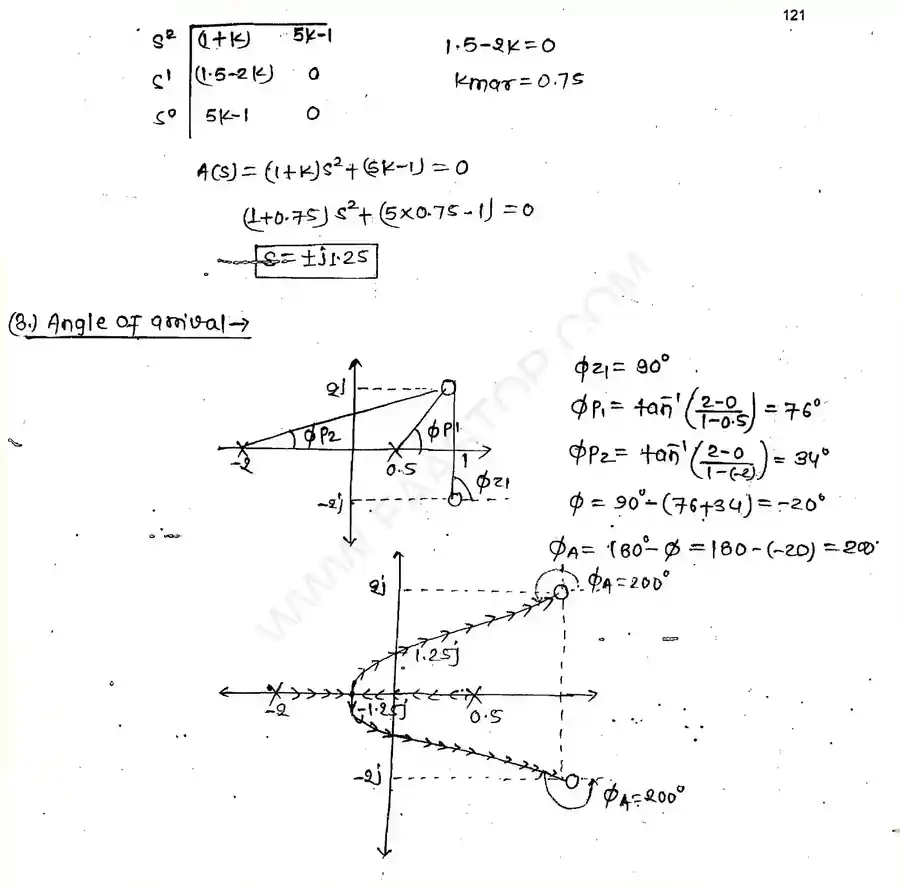 121
S² (1+K) 5K-1
S¹ (1.5-2K) 0
S⁰ 5K-1 0
1.5-2K=0
Kmar=0.75
A(S) = (1+K)S²+(5K-1) = 0
(1+0.75)S²+(5×0.75-1) = 0
S=±j1.25
(3.) Angle of arrival→
2j
ϕP2 ϕP1
-2 0.5 1
ϕz1
-2j
ϕz1= 90°
ϕP1= tan⁻¹(2-0/1-0.5) = 76°
ϕP2= tan⁻¹(2-0/1-(-2)) = 34°
ϕ= 90°-(76+34) = -20°
ϕA= 180°-ϕ = 180-(-20) = 200°
2j ϕA=200°
1.25j
-2 -1.25j 0.5
-2j ϕA=200°
WWW.PAASTOP.COM